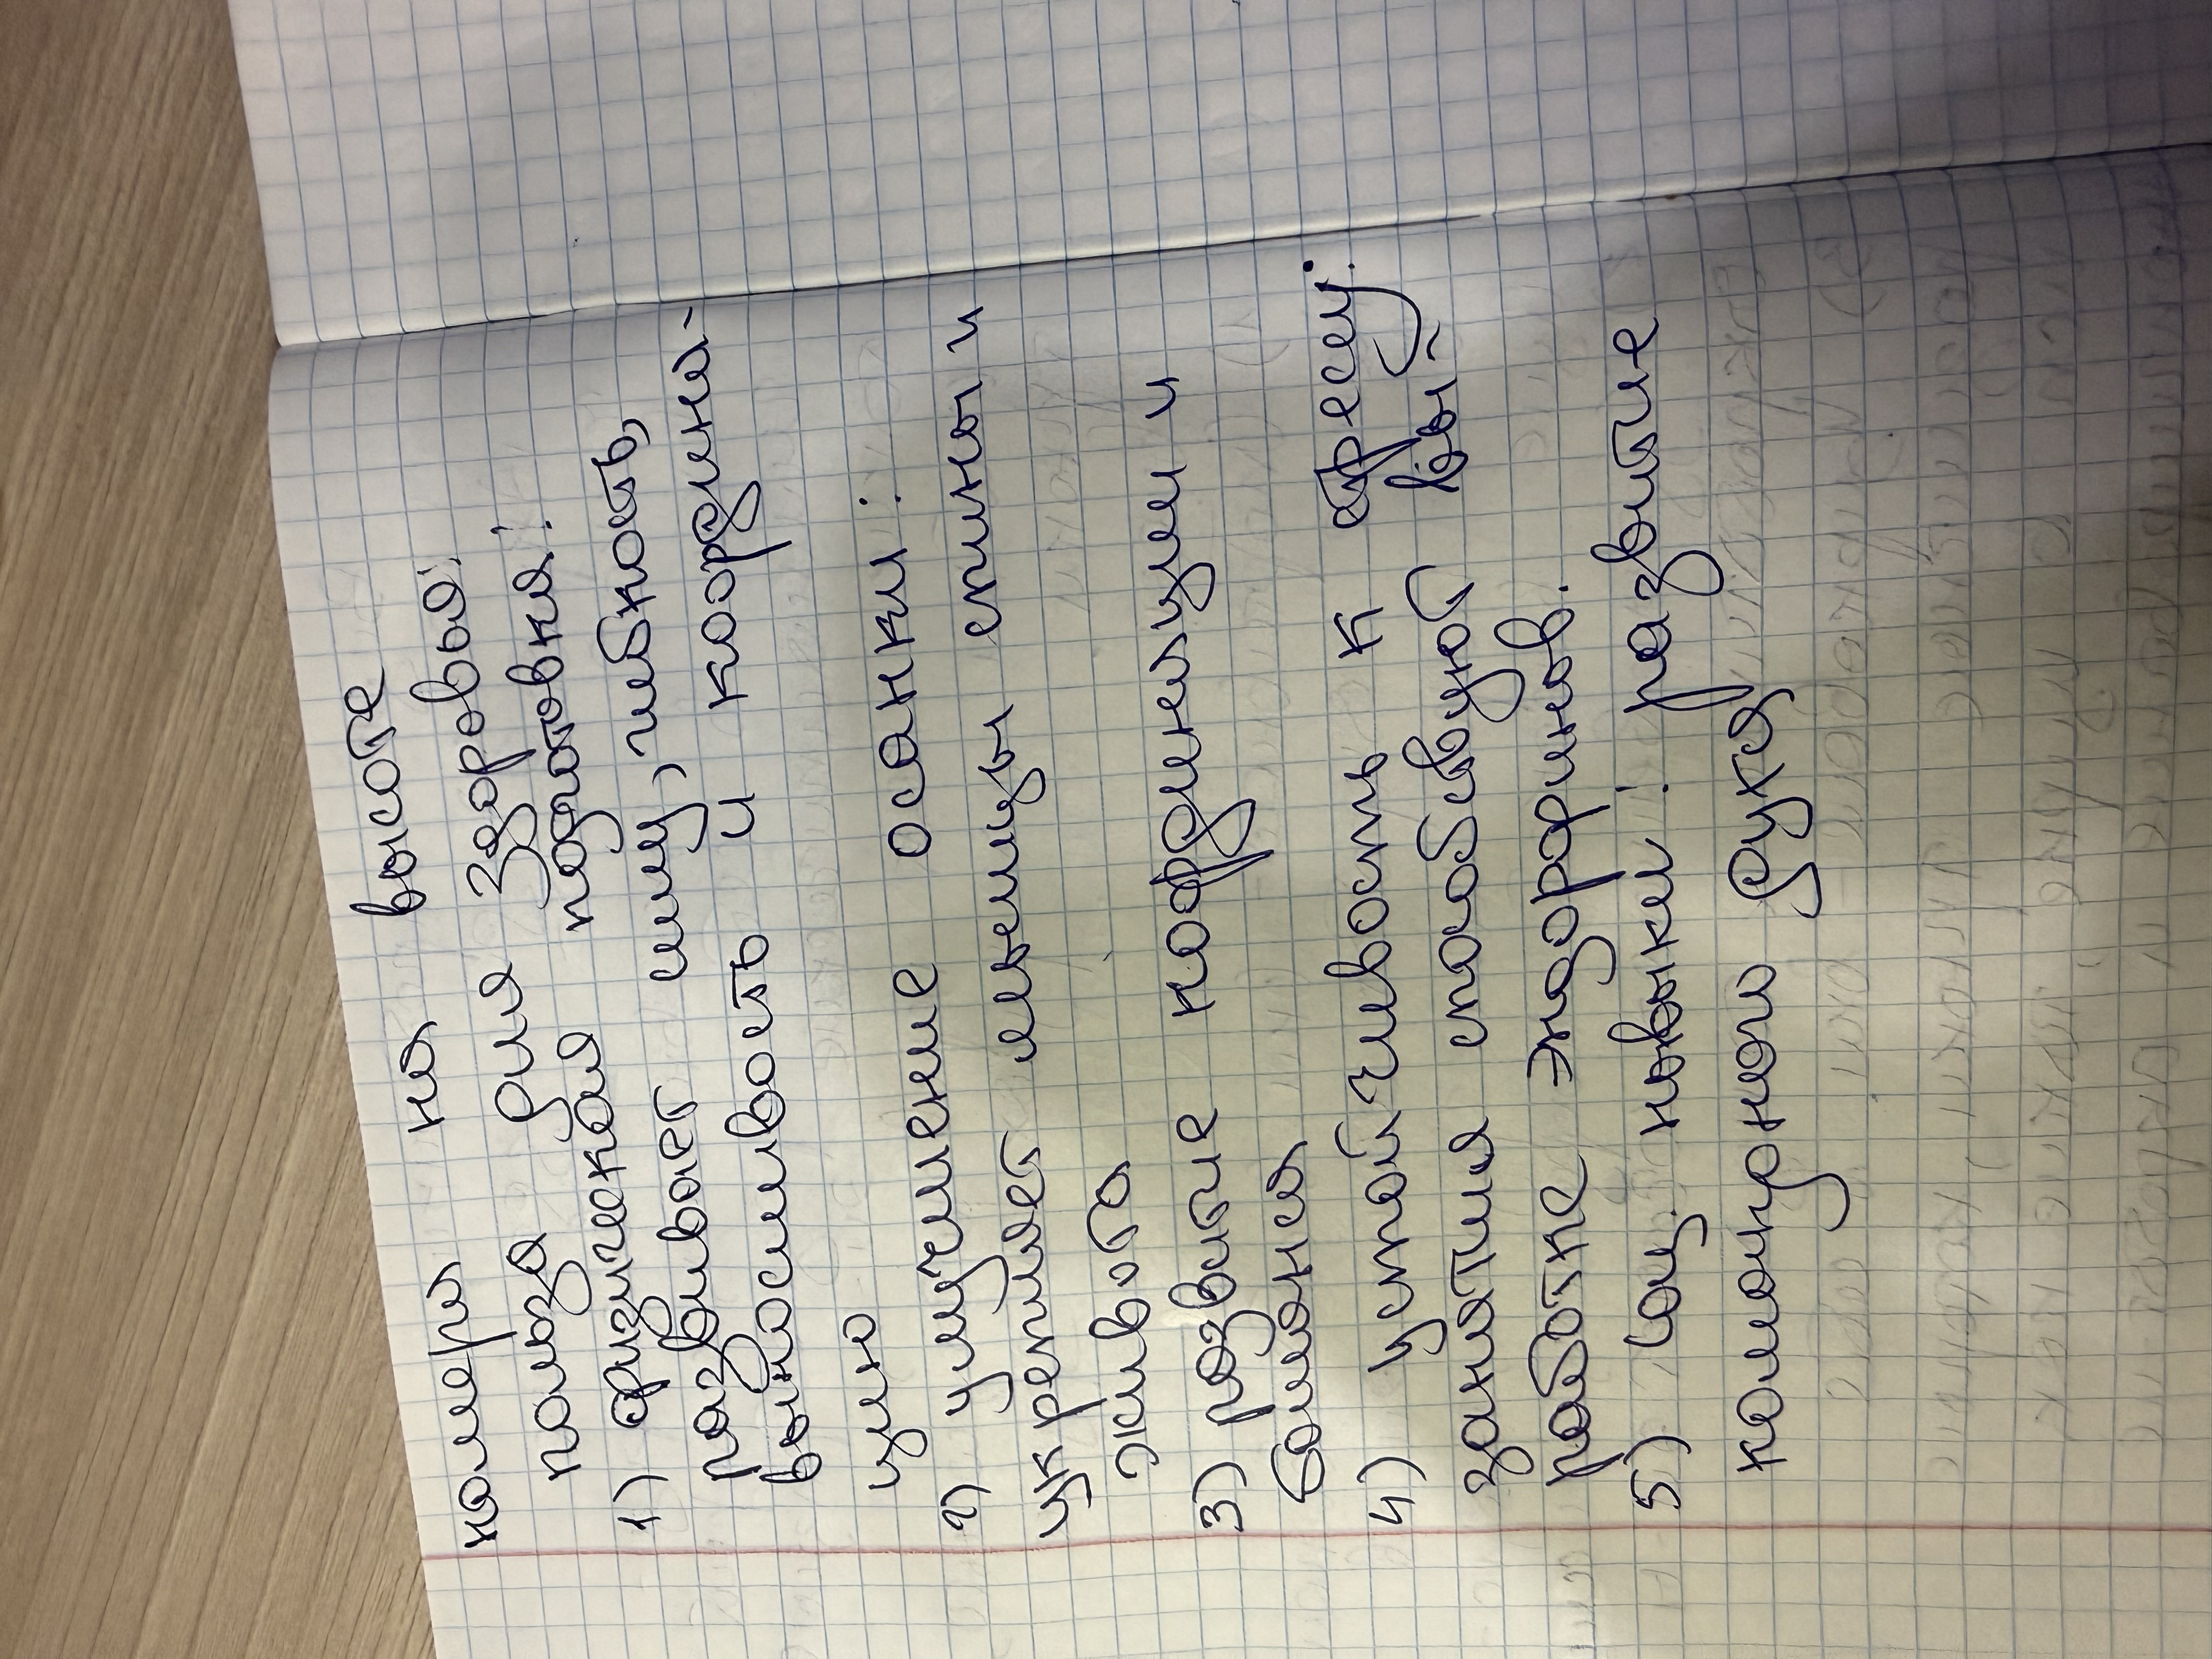 номера на высоте
польза для здоровья:
1) физическая подготовка:
развивает силу, гибкость,
выносливость и координа-
цию
2) улучшение осанки:
укрепляет мышцы спины и
живота
3) развитие координации и
баланса
4) устойчивость к стрессу:
занятия способствуют вы-
работке эндорфинов.
5) соц. навыки: развитие
командного духа